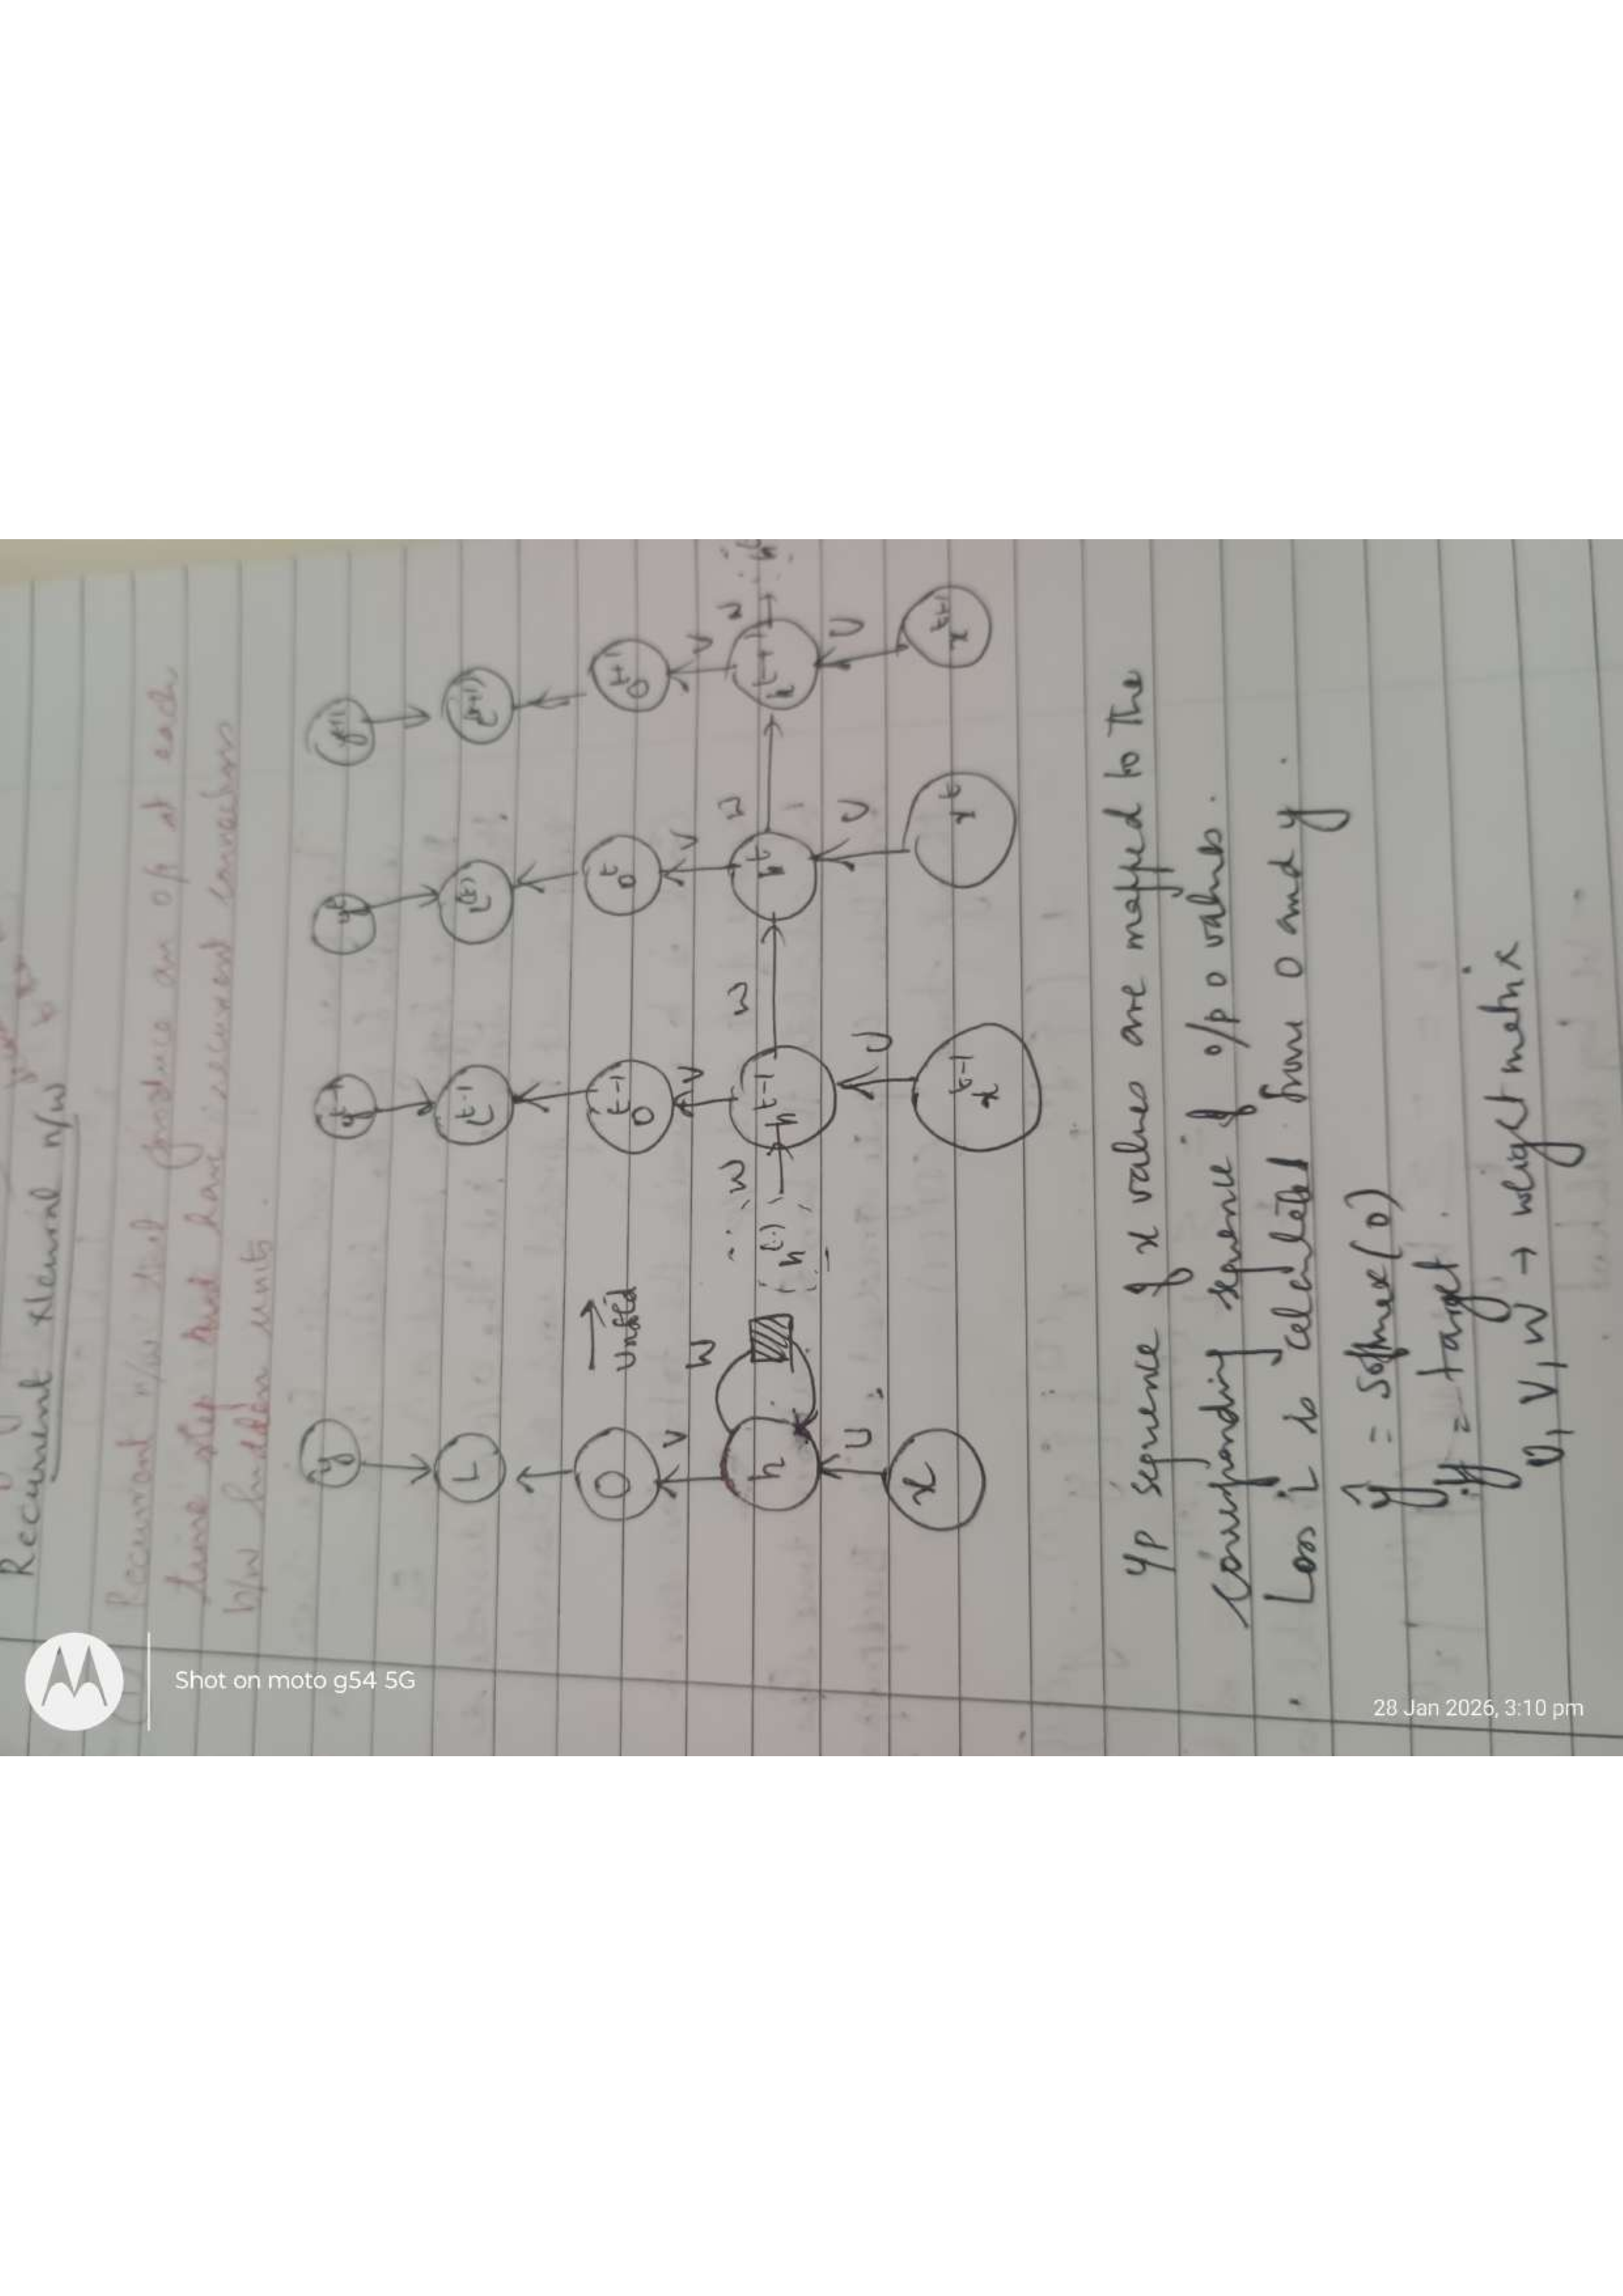 Recurrent Neural n/w
Recurrent n/w that produce an o/p at each
time step and have recurrent connections
b/w hidden units.
y y^t-1 y^t y^t+1
L L^t-1 L^(t) L^(t+1)
O O^t-1 O^t O^t+1
Unfold
V V V V
W W W W W
h h^(..) h^t-1 h^t h^t+1
U U U U
x x^t-1 x^t x^t+1
I/p sequence of x values are mapped to the
corresponding sequence of o/p o values.
Loss L is calculated from O and y.
ŷ = softmax(O)
y = target.
U, V, W → weight matrix
Shot on moto g54 5G
28 Jan 2026, 3:10 pm